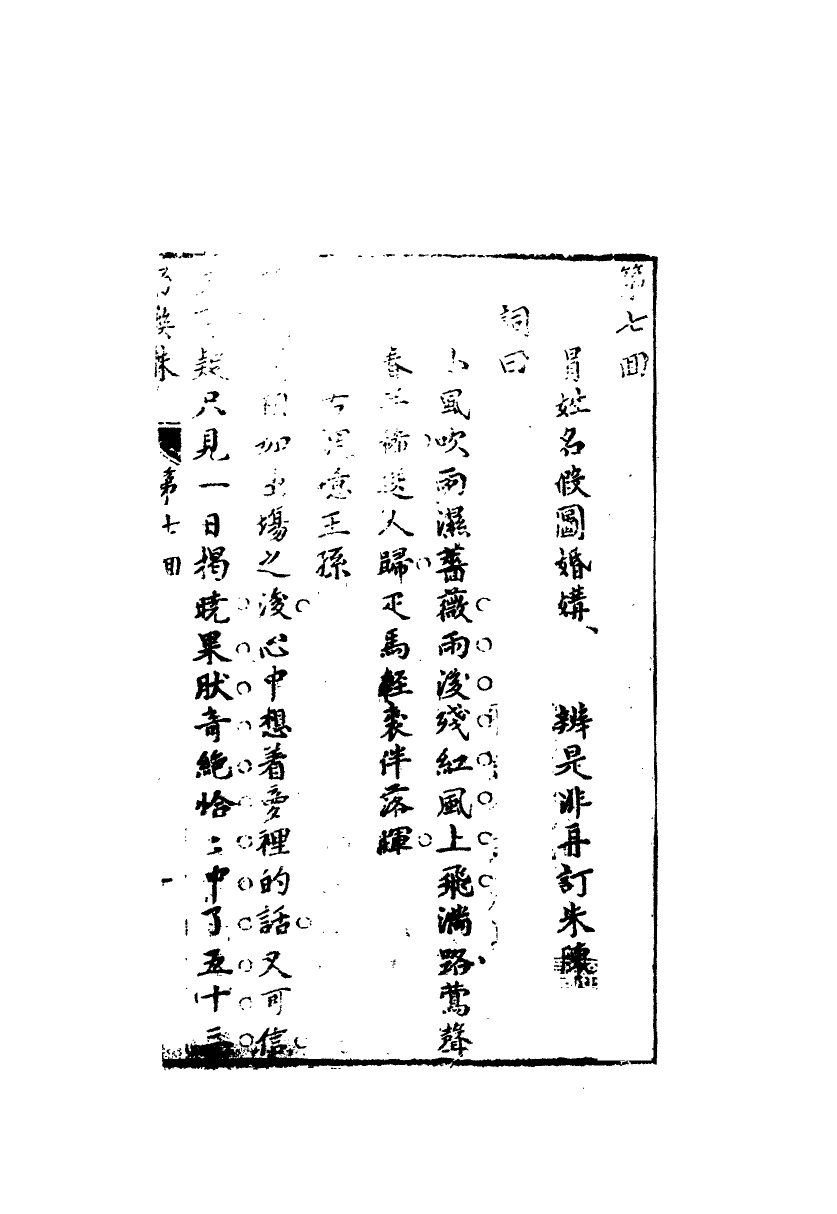 第七回
冒姓名假圖婚媾、　辨是非再訂朱陳
詞曰
小風吹雨濕薔薇雨後殘紅風上飛滿路鶯聲
春人歸疋馬輕裘伴落暉
右憶王孫
場之後心中想着夢裡的話又可信
疑只見一日揭曉果狀奇絕恰〻中了五十三
第七回